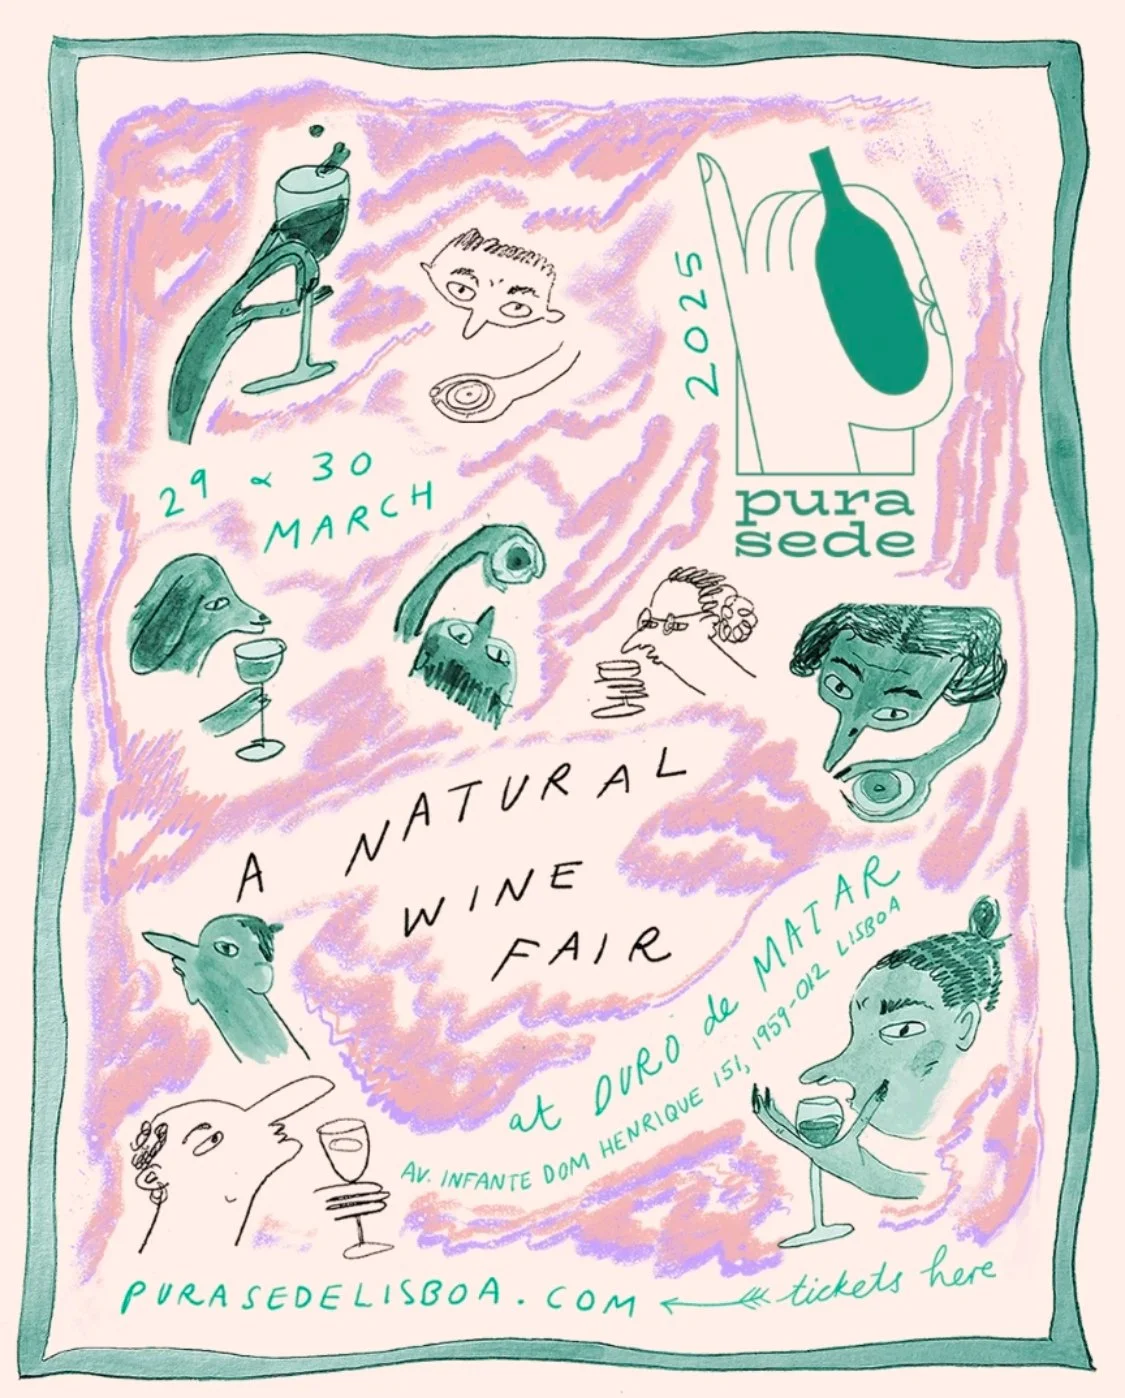 2025
pura
sede
29 & 30
MARCH
A NATURAL
WINE
FAIR
at DURO de MATAR
AV. INFANTE DOM HENRIQUE 151, 1959-012 LISBOA
PURASEDELISBOA.COM ← tickets here